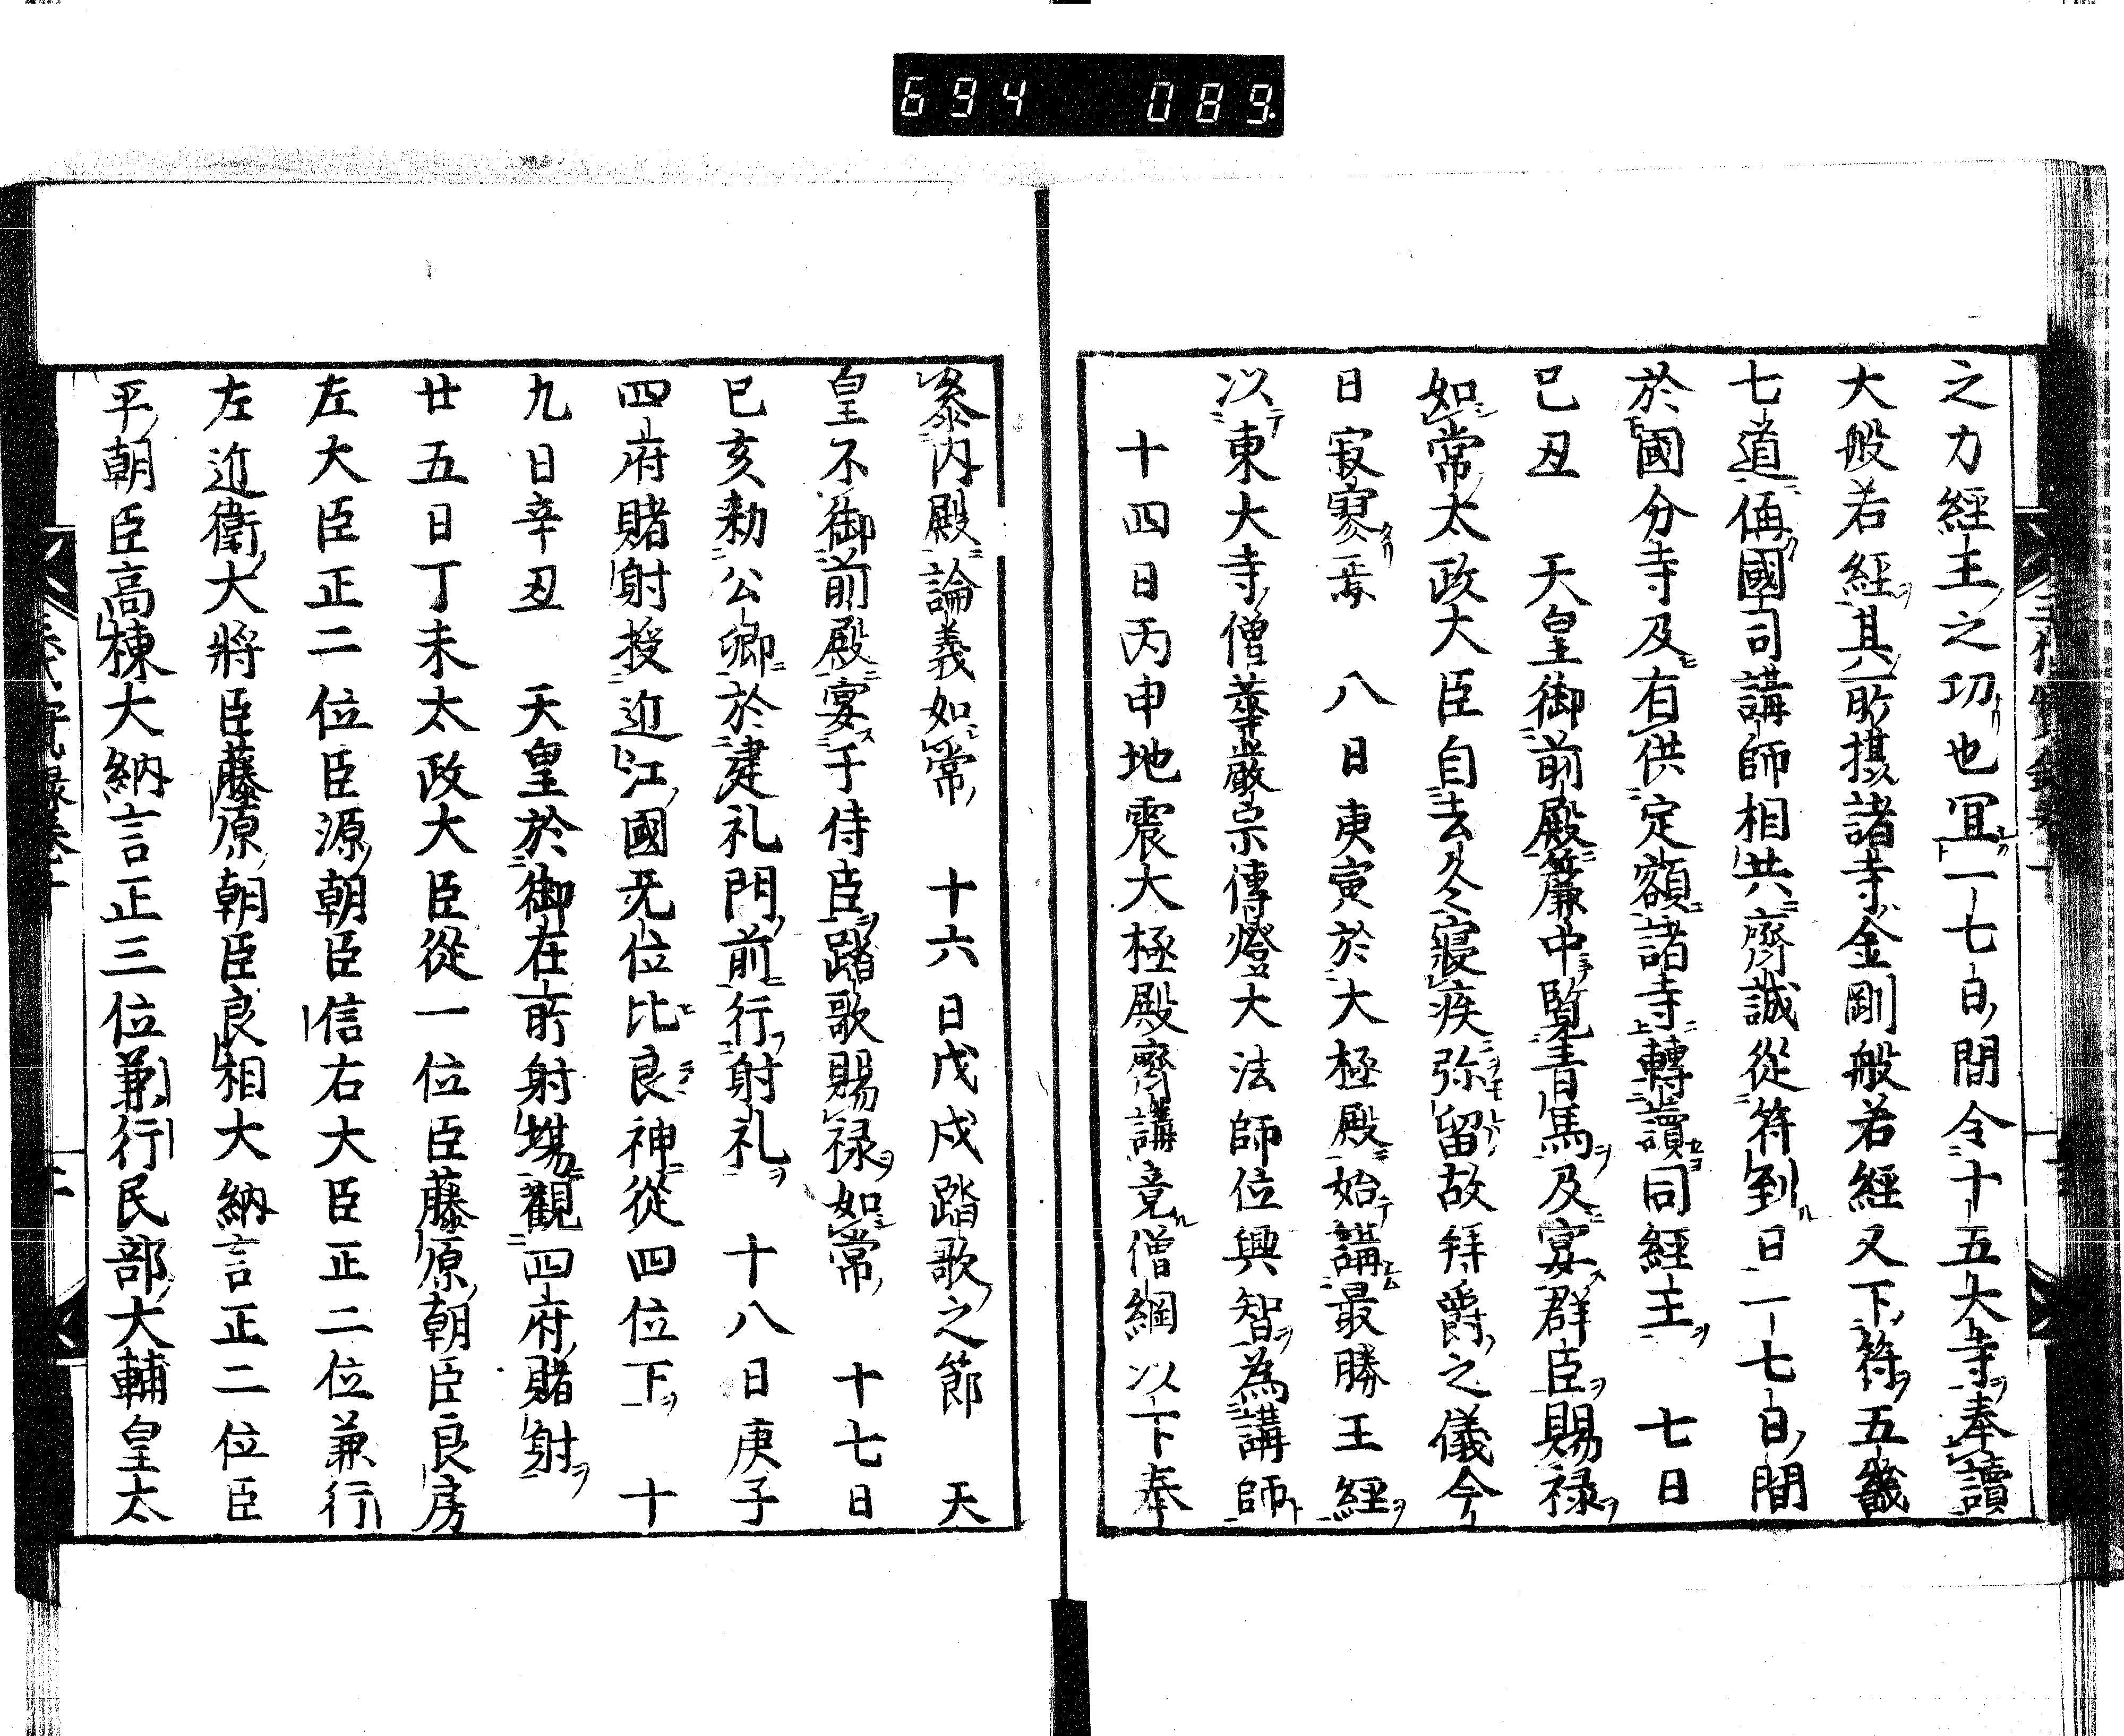 694 089.
之力經王之功也冝一七日間令十五大寺奉讀
大般若經其所攝諸寺金剛般若經又下符五畿
七道偁國司講師相共齊誠從符到日一七日間
於國分寺及有供定額諸寺轉讀同經王 七日
己丑 天皇御前殿簾中覧青馬及宴群臣賜禄
如常太政大臣自去久寝疾弥留故拜爵之儀今
日寂寥焉 八日庚寅於大極殿始講最勝王經
以東大寺僧華嚴宗傳燈大法師位興智為講師
十四日丙申地震大極殿齊講竟僧綱以下奉
叅内殿論義如常 十六日戊戌踏歌之節 天
皇不御前殿宴于侍臣踏歌賜禄如常 十七日
已亥勑公卿於建礼門前行射礼 十八日庚子
四府賭射授近江國无位比良神從四位下 十
九日辛丑 天皇於御在所射場觀四府賭射
廿五日丁未太政大臣從一位臣藤原朝臣良房
左大臣正二位臣源朝臣信右大臣正二位兼行
左近衛大將臣藤原朝臣良相大納言正二位臣
平朝臣高棟大納言正三位兼行民部大輔皇太